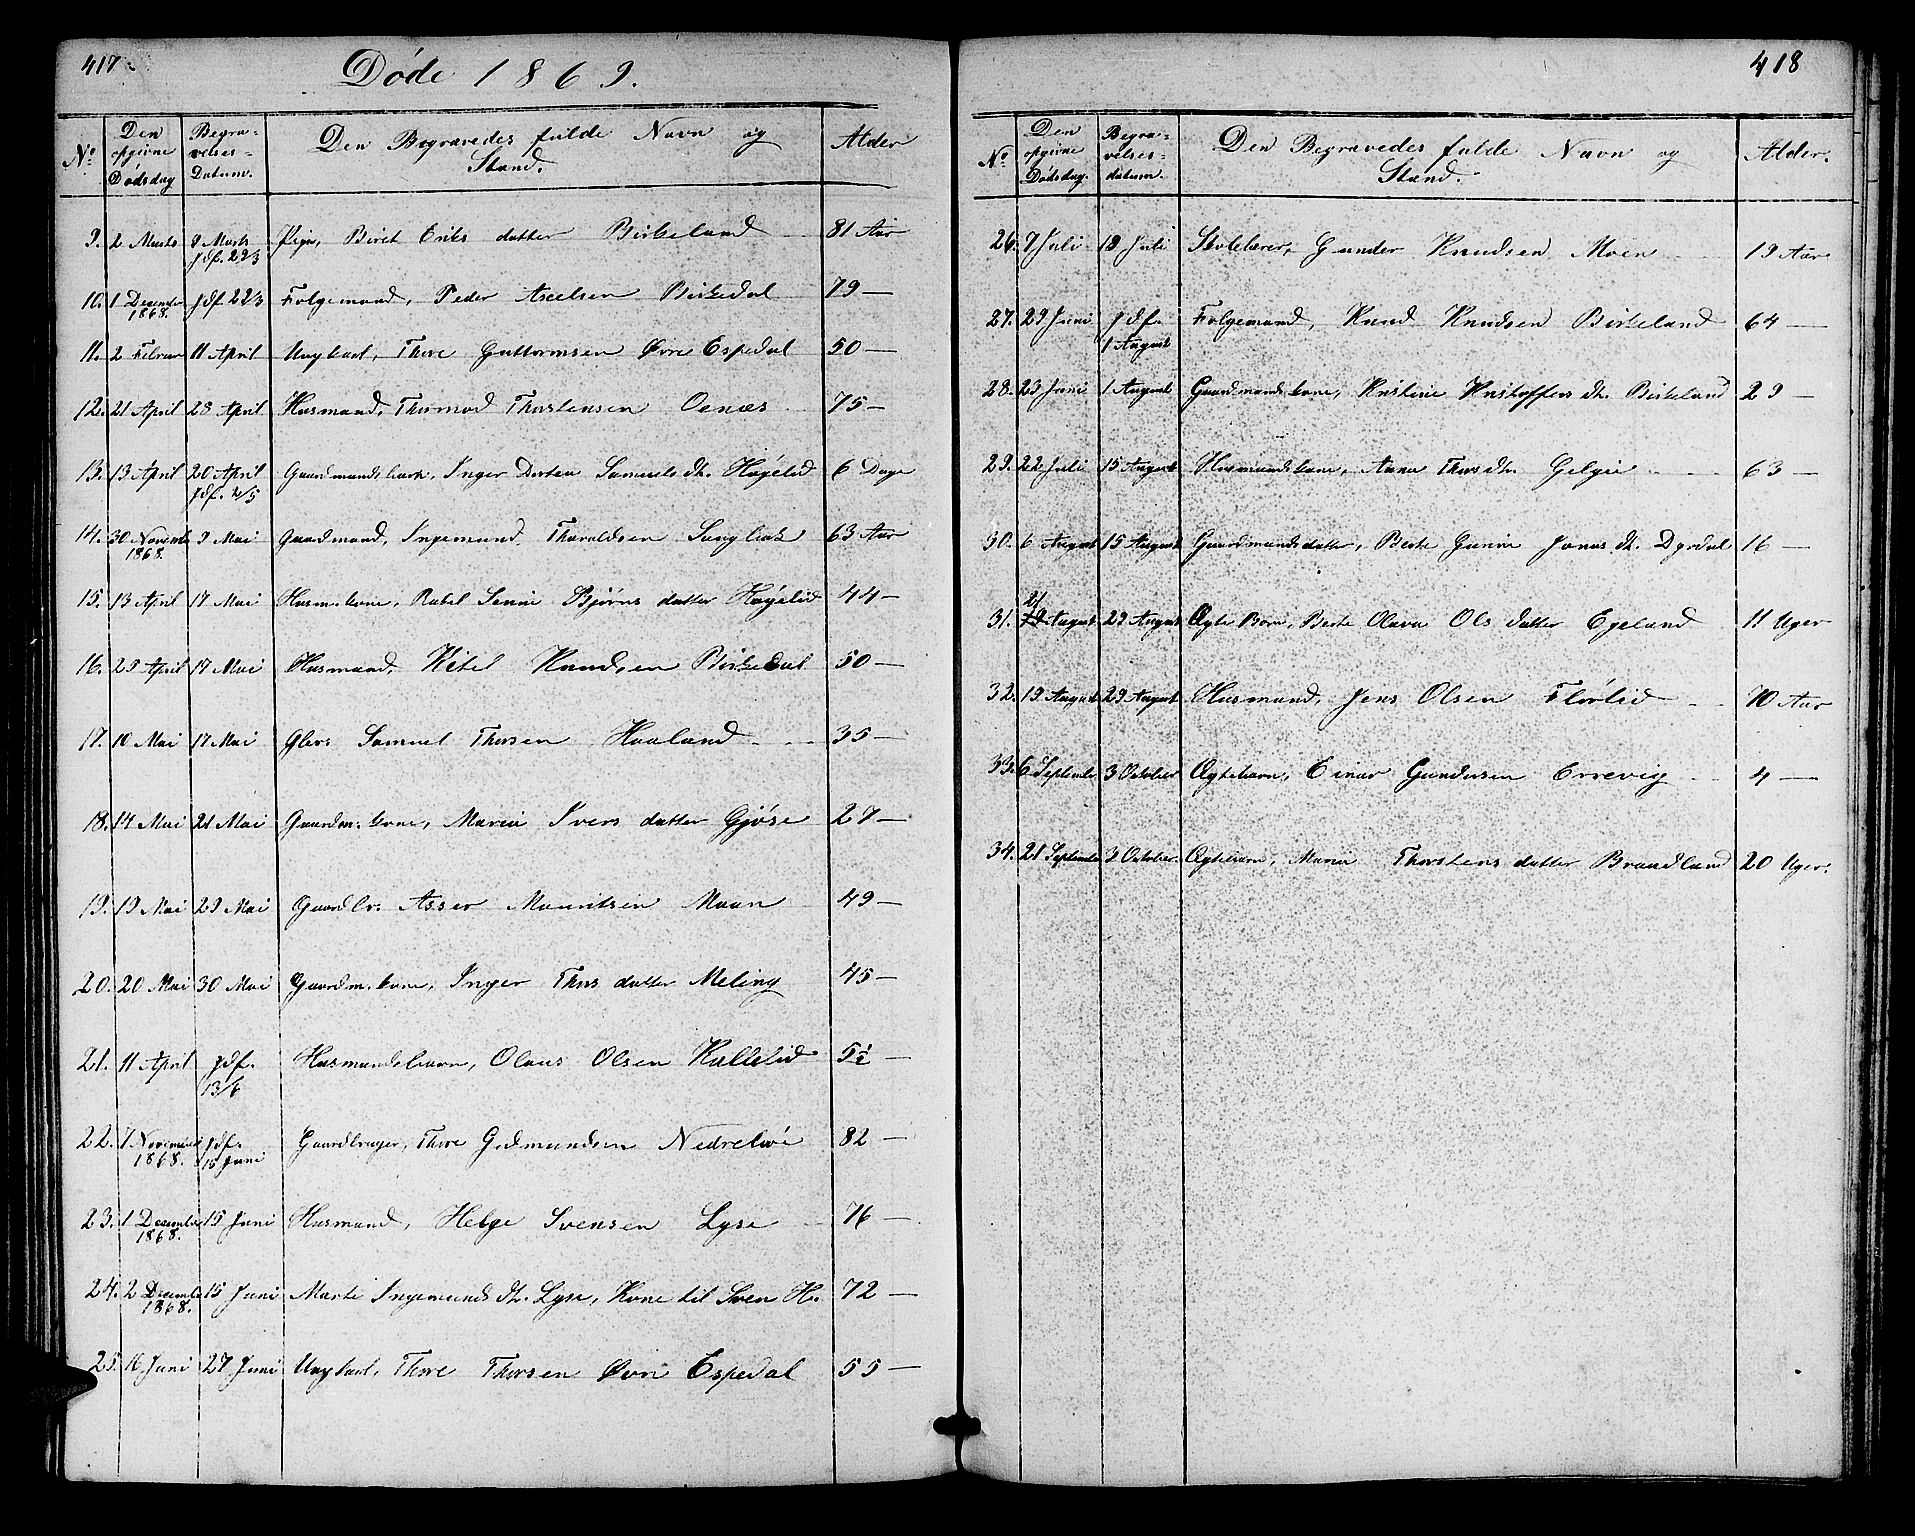 417
Døde 1869.
No. Den opgivne Dødsdag Begravelses-Datum. Den Begravedes fulde Navn og Stand. Alder
9. 2 Marts 9 Marts Pige, Biret Eriks datter Birkeland 81 Aar
jdf. 22/3
10. 1 December jdf. 22/3 Folgemand, Peder Axelsen Birkedal 79 —
1868.
11. 2 Februar 11 April Ungkarl, Thore Guttormsen Øvre Espedal 50 —
12. 21 April 28 April Husmand, Thormod Thorstensen Oenæs 75 —
13. 13 April 20 April Gaardmandsbarn, Inger Dorten Samuels dt. Høgelid 6 Dage
jdf. 2/5
14. 30 Novemb 9 Mai Gaardmand, Ingemund Tharaldsen 63 Aar
1868.
15. 13 April 17 Mai Husm. kone, Rakel Serine Bjørns datter Høgelid 44 —
16. 29 April 17 Mai Husmand, Kitel Knudsen Birkedal 50 —
17. 10 Mai 17 Mai Glbr. Samuel Thorsen Haaland 35 —
18. 14 Mai 21 Mai Gaardm. kone, Maria Ivers datter Gjøse 27 —
19. 19 Mai 29 Mai Gaardbr. Asser Mauritsen Maan 49 —
20. 20 Mai 30 Mai Gaardm. kone, Inger Thors datter Meling 45 —
21. 11 April jdf. Husmandsbarn, Olaus Olsen Kallelid 5½ —
13/6
22. 7 November jdf. Gaardbruger, Thore Gudmundsen Nedrebøe 82 —
1868. 15 Juni
23. 1 December 15 Juni Husmand, Helge Svensen Lyse 76 —
1868.
24. 2 December 15 Juni Marte Ingemunds dt. Lyse, Kone til Sven H. 72 —
1868.
25. 16 Juni 27 Juni Ungkarl, Thore Thorsen Øvre Espedal 55 —
418
No. Den opgivne Dødsdag. Begravelses-datum. Den Begravedes fulde Navn og Stand. Alder.
26. 7 Juli 18 Juli Skolelærer, Gunder Knudsen Moen 19 Aar
27. 29 Juni jdf. Folgemand, Knud Knudsen Birkeland 64 —
1 August
28. 23 Juni 1 August Gaardmandskone, Kristine Kristoffers dt. Birkeland 29 —
29. 22 Juli 15 August Husmandskone, Anna Thors dt. Helgie 63 —
30. 6 August 15 August Gaardmandsdatter, Berte Gurine Jonas dt. Dyrdal 16 —
21
31. 19 August. 29 August Ægte Barn, Berte Olava Ols datter Egeland 11 Uger
32. 19 August 29 August Husmand, Jens Olsen Flørlid 70 Aar
33. 6 Septembe 3 October Ægtebarn, Einar Gundersen Errevig 4 —
34. 21 Septembe 3 October. Ægtebarn, Maria Thorstens datter Brandland 20 Uger.